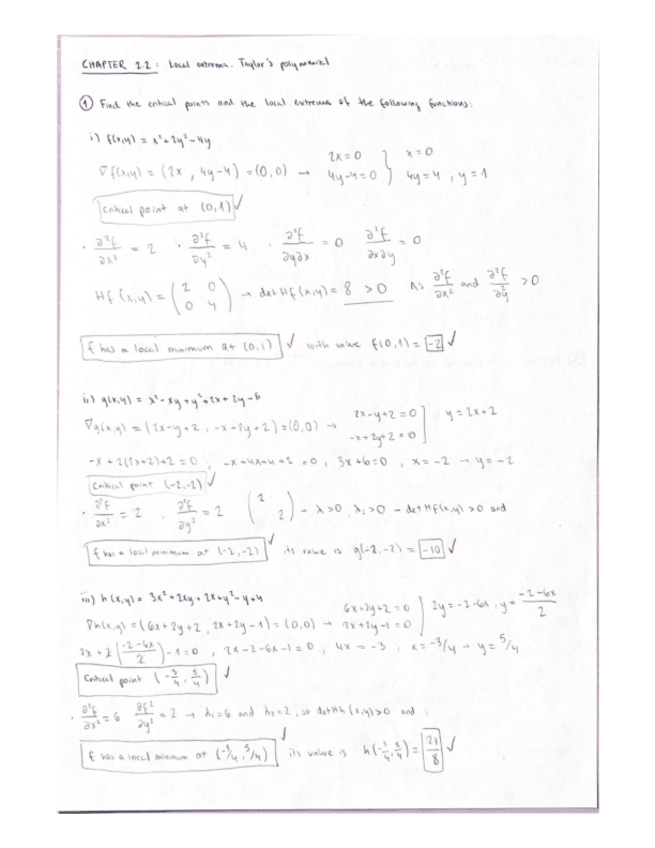 CHAPTER 2.2: Local extrema. Taylor's polynomial
① Find the critical points and the local extrema of the following functions:
i) f(x,y) = x² + 2y² - 4y
∇f(x,y) = (2x, 4y-4) = (0,0) → 2x = 0 } x = 0
4y-4 = 0 } 4y = 4, y = 1
Critical point at (0,1) ✓
· ∂²f/∂x² = 2 · ∂²f/∂y² = 4 · ∂²f/∂y∂x = 0 ∂²f/∂x∂y = 0
Hf(x,y) = (2 0 / 0 4) → det Hf(x,y) = 8 > 0 As ∂²f/∂x² and ∂²f/∂y² > 0
f has a local minimum at (0,1) ✓ with value f(0,1) = -2 ✓
ii) g(x,y) = x² - xy + y² + 2x + 2y - 6
∇g(x,y) = (2x-y+2, -x+2y+2) = (0,0) → 2x-y+2 = 0 } y = 2x+2
-x+2y+2 = 0
-x + 2(2x+2) + 2 = 0, -x + 4x + 4 + 2 = 0, 3x+6 = 0, x = -2 → y = -2
Critical point (-2,-2) ✓
· ∂²f/∂x² = 2, ∂²f/∂y² = 2 (2 / 2) → λ > 0, λ₂ > 0 → det Hf(x,y) > 0 and
f has a local minimum at (-2,-2) ✓ its value is g(-2,-2) = -10 ✓
iii) h(x,y) = 3x² + 2xy + 2x + y² - y + 4
∇h(x,y) = (6x+2y+2, 2x+2y-1) = (0,0) → 6x+2y+2 = 0 } 2y = -2-6x, y = (-2-6x)/2
2x+2y-1 = 0
2x + 2((-2-6x)/2) - 1 = 0, 2x-2-6x-1 = 0, 4x = -3, x = -3/4 → y = 5/4
Critical point (-3/4, 5/4) ✓
· ∂²f/∂x² = 6 ∂f²/∂y² = 2 → λ₁ = 6 and λ₂ = 2, so det Hh(x,y) > 0 and
f has a local minimum at (-3/4, 5/4) ✓ its value is h(-3/4, 5/4) = 21/8 ✓